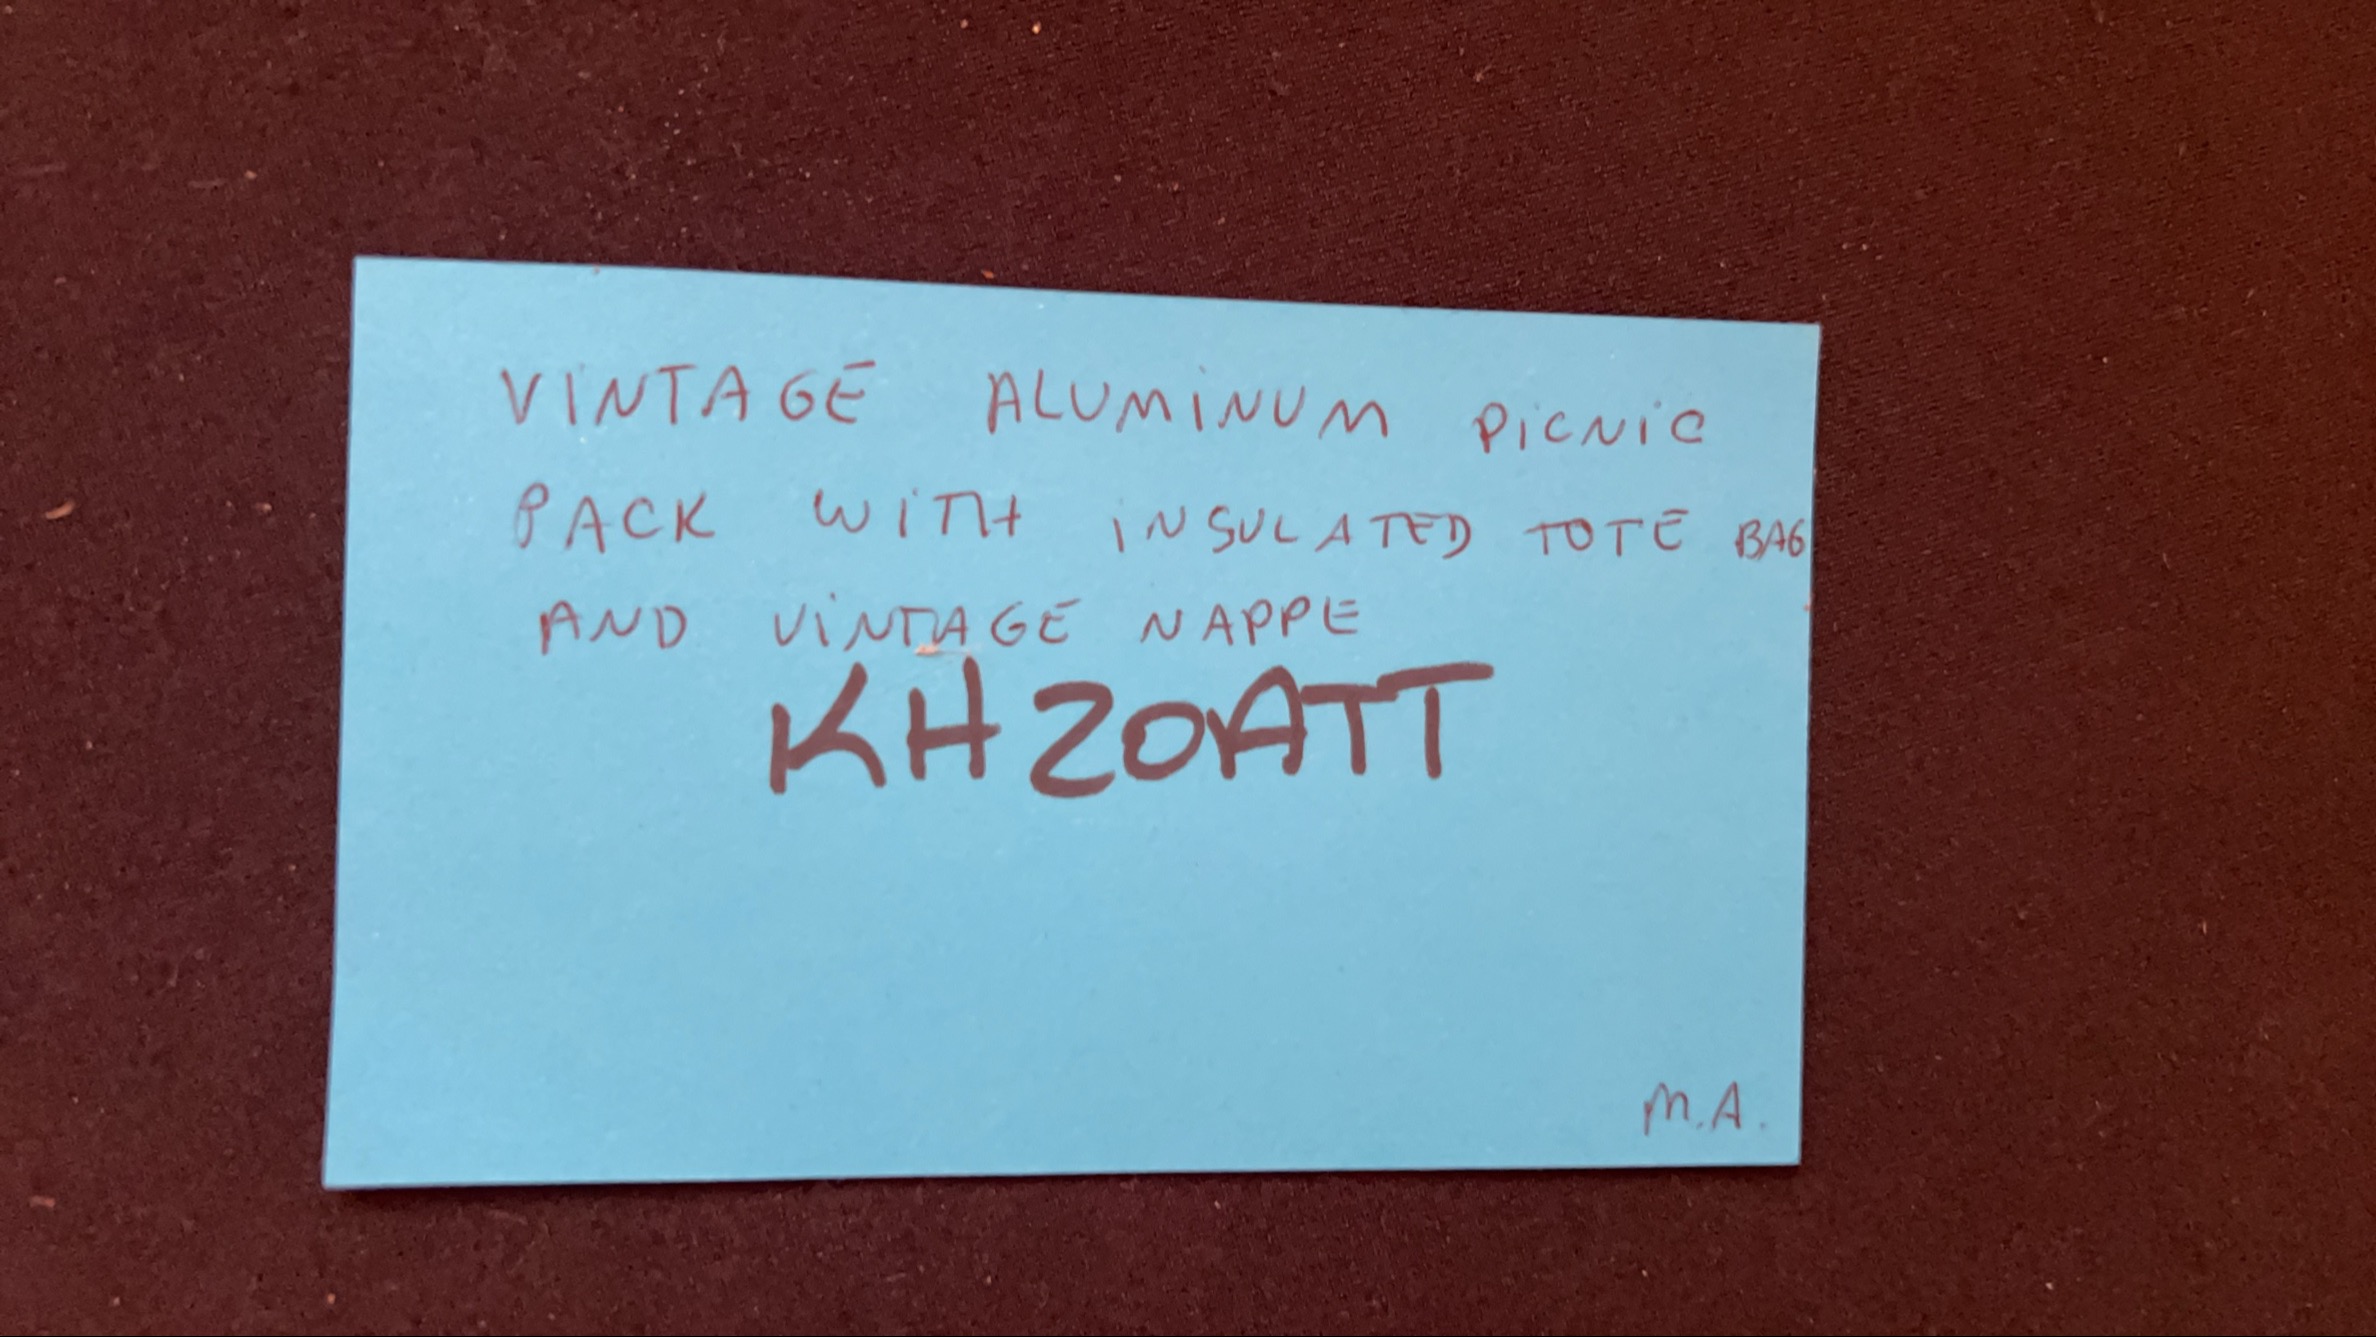 VINTAGE ALUMINUM PICNIC
PACK WITH INSULATED TOTE BAG
AND VINTAGE NAPPE
KHZOATT
M.A.